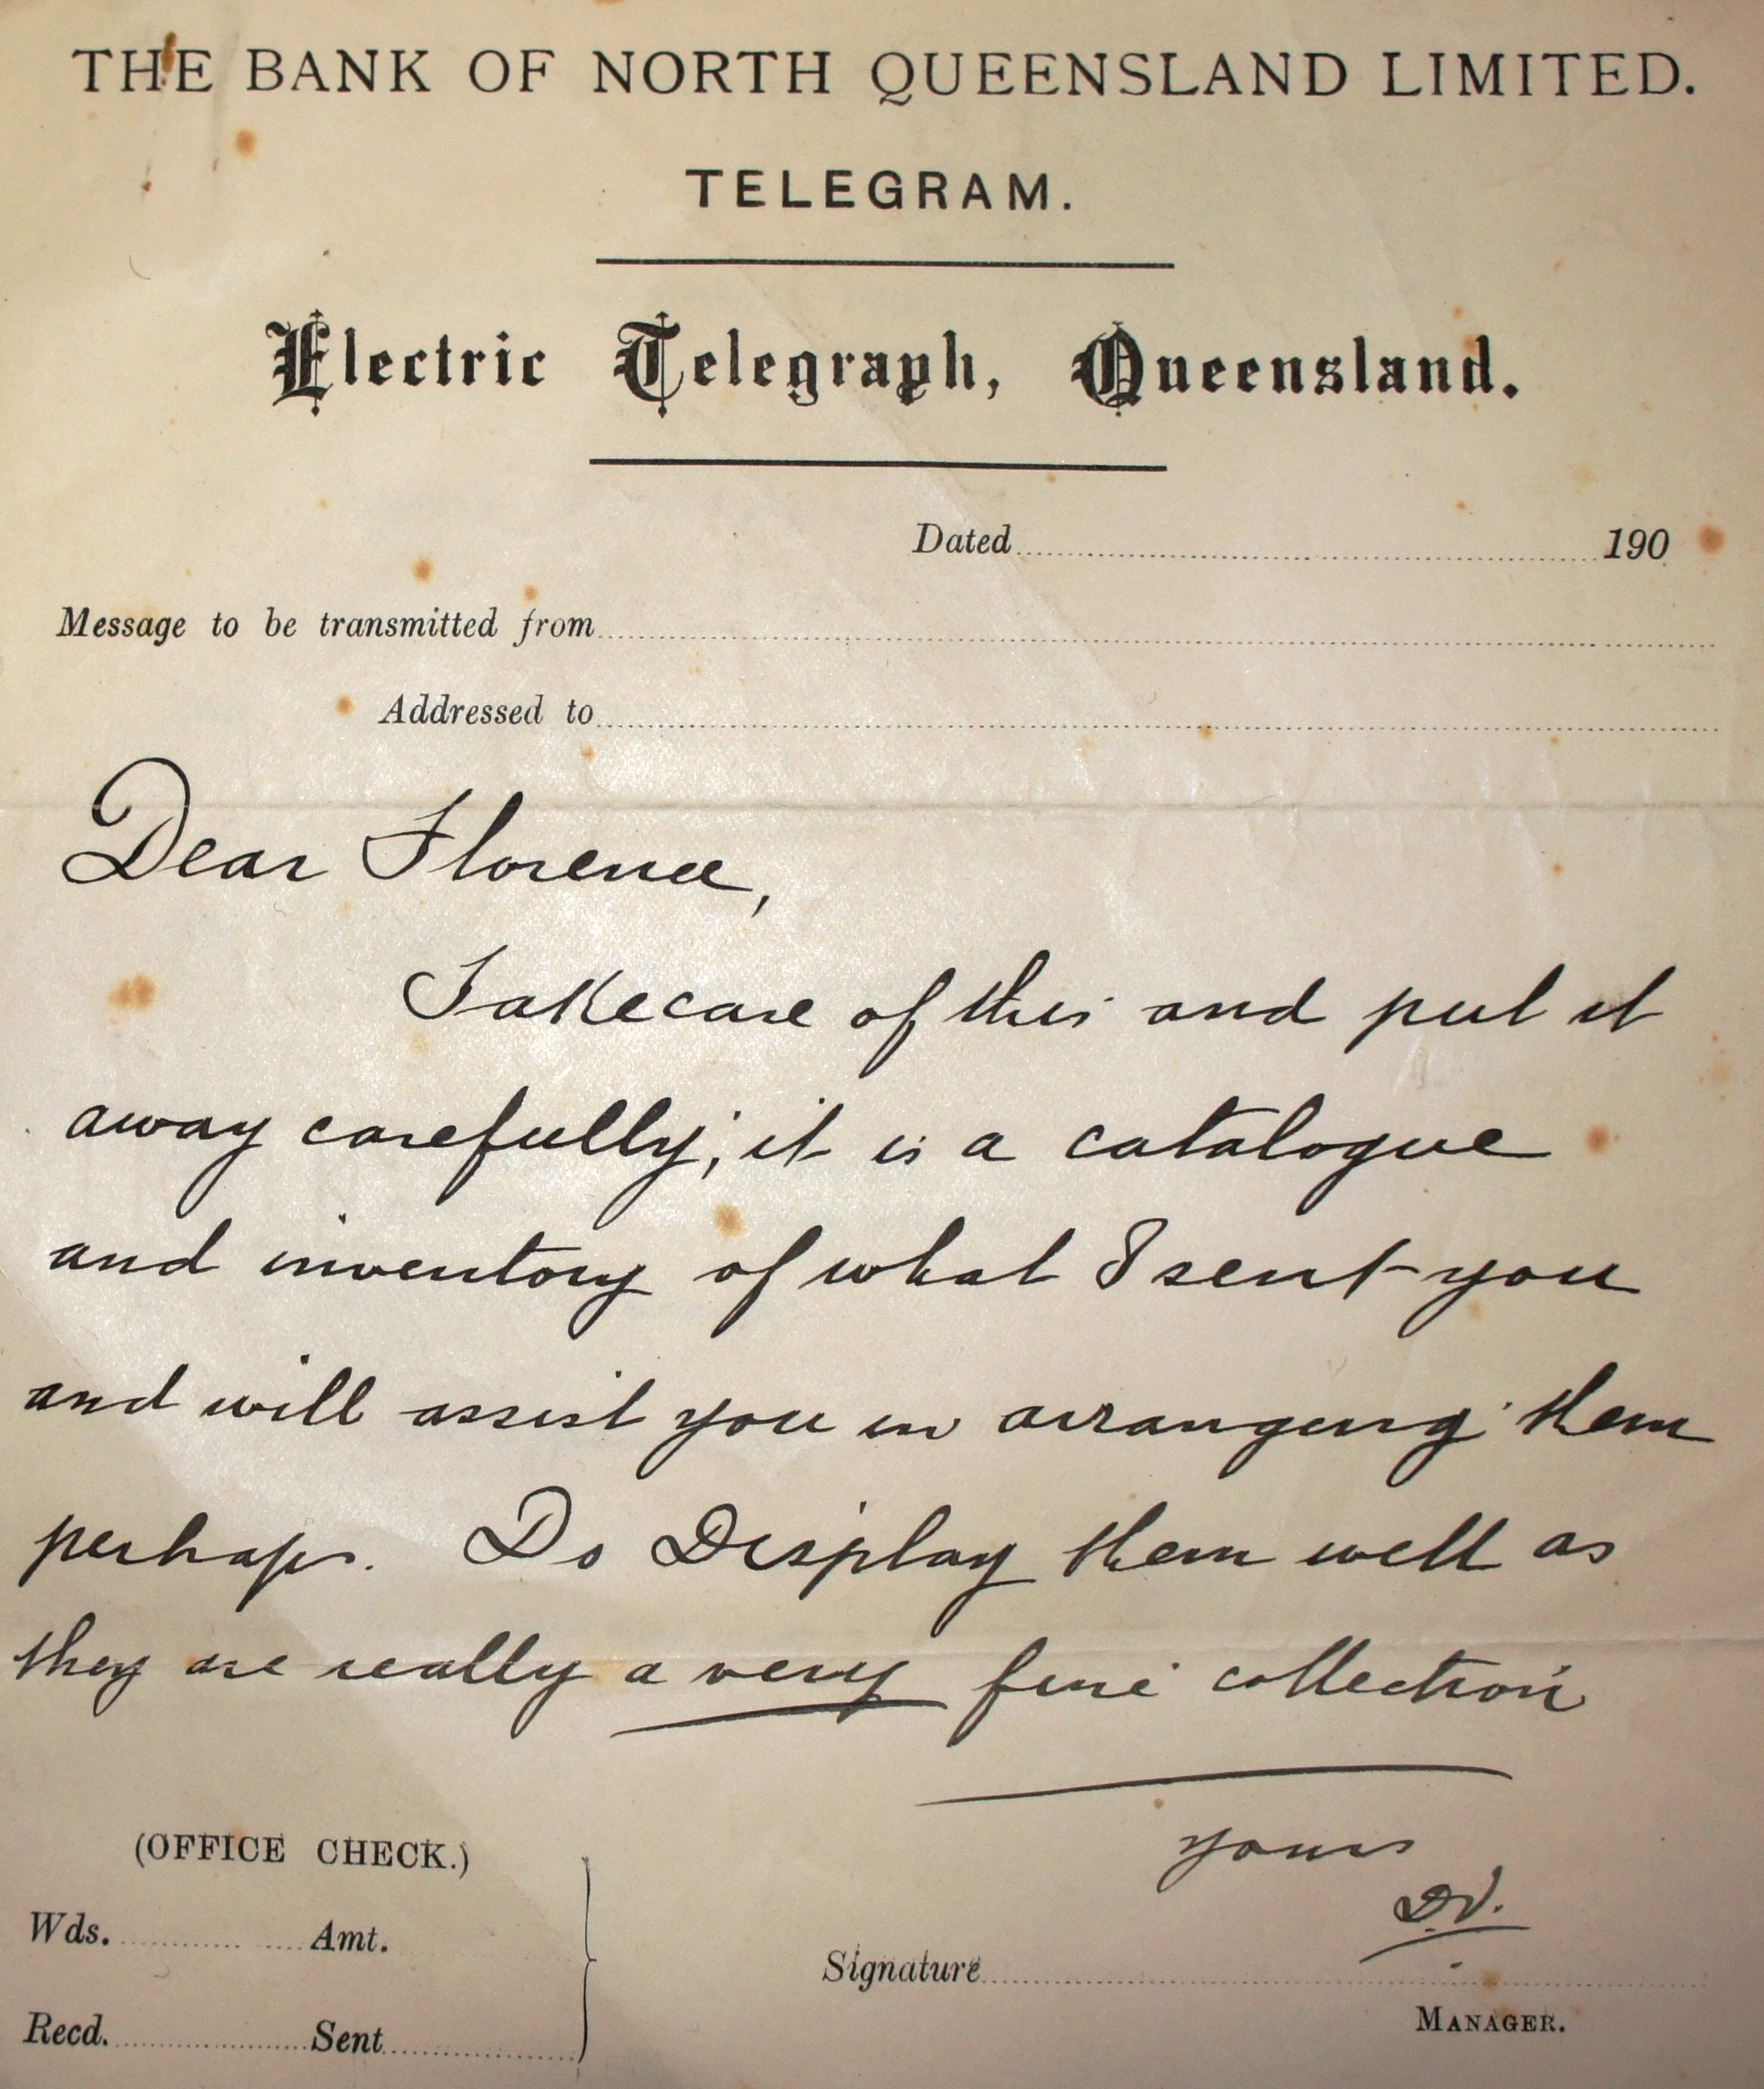 THE BANK OF NORTH QUEENSLAND LIMITED.
TELEGRAM.
Electric Telegraph, Queensland.
Dated 190
Message to be transmitted from
Addressed to
Dear Florence,
Take care of this and put it
away carefully; it is a catalogue
and inventory of what I sent you
and will assist you in arranging them
perhaps. Do Display them well as
they are really a very fine collection
yours
DV.
(OFFICE CHECK.)
Wds. Amt.
Signature
Recd. Sent
MANAGER.